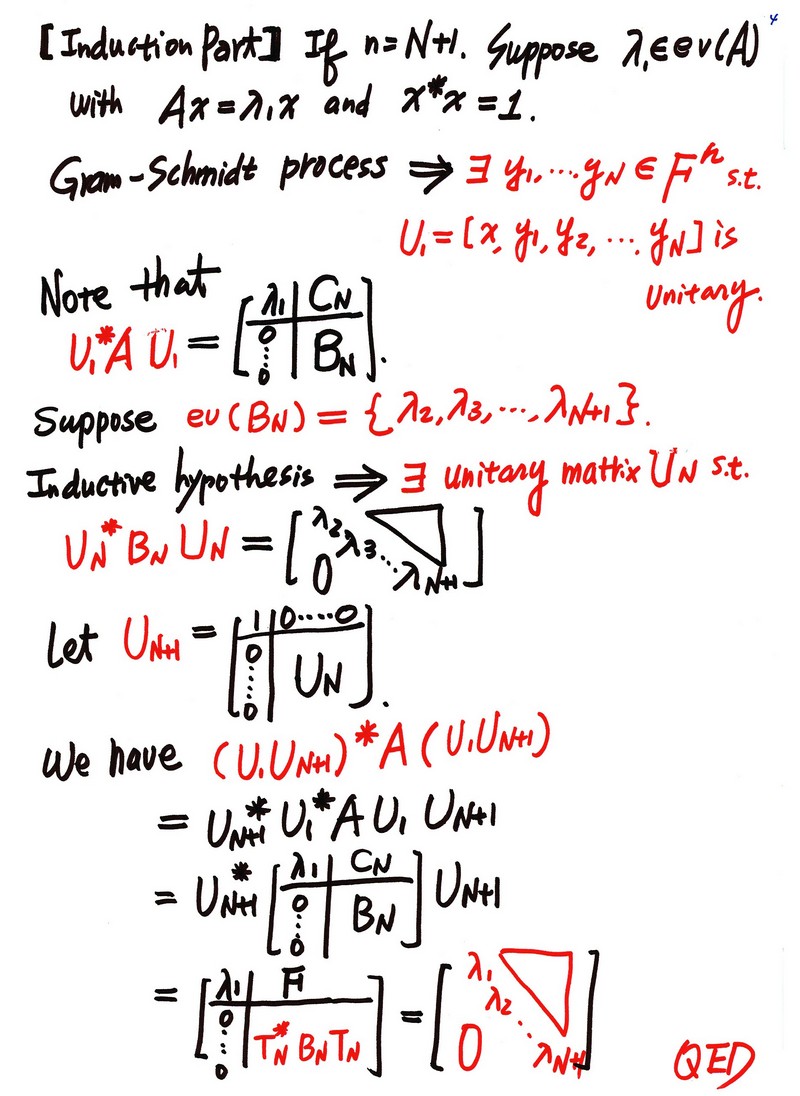 4
[Induction Part] If n=N+1. Suppose λ₁∈ev(A)
with Ax=λ₁x and x*x=1.
Gram-Schmidt process ⇒ ∃ y₁,⋯y_N ∈ Fⁿ s.t.
U₁=[x, y₁, y₂, ⋯ y_N] is
Unitary.
Note that
U₁*A U₁ = [λ₁ | C_N ; 0 ⋮ 0 | B_N].
Suppose ev(B_N) = {λ₂, λ₃, ⋯, λ_N+1}.
Inductive hypothesis ⇒ ∃ unitary matrix U_N s.t.
U_N* B_N U_N = [λ₂ λ₃ ⋱ λ_N+1 ; 0]
Let U_N+1 = [1 | 0⋯⋯0 ; 0 ⋮ 0 | U_N].
We have (U₁U_N+1)*A(U₁U_N+1)
= U_N+1* U₁* A U₁ U_N+1
= U_N+1* [λ₁ | C_N ; 0 ⋮ 0 | B_N] U_N+1
= [λ₁ | F ; 0 ⋮ 0 | T_N* B_N T_N] = [λ₁ λ₂ ⋱ λ_N+1 ; 0]
QED